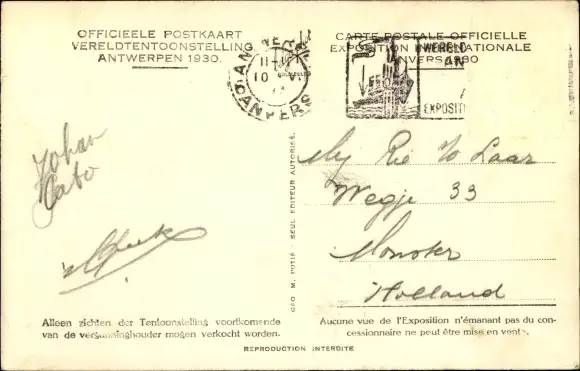 OFFICIEELE POSTKAART
VERELDTENTOONSTELLING
ANTWERPEN 1930.
CARTE POSTALE OFFICIELLE
EXPOSITION INTERNATIONALE
ANVERS 1930
ANTWERPEN
ANVERS
WERELD
AN
EXPOSITI
Johan
Cato
Mej Rie to Laar
Wegje 33
Monster
Holland
GEO M. SEUL EDITEUR AUTORISÉ.
Alleen zichten der Tentoonstelling voortkomende
van de vergunninghouder mogen verkocht worden.
Aucune vue de l'Exposition n'émanant pas du con-
cessionnaire ne peut être mise en vente.
REPRODUCTION INTERDITE